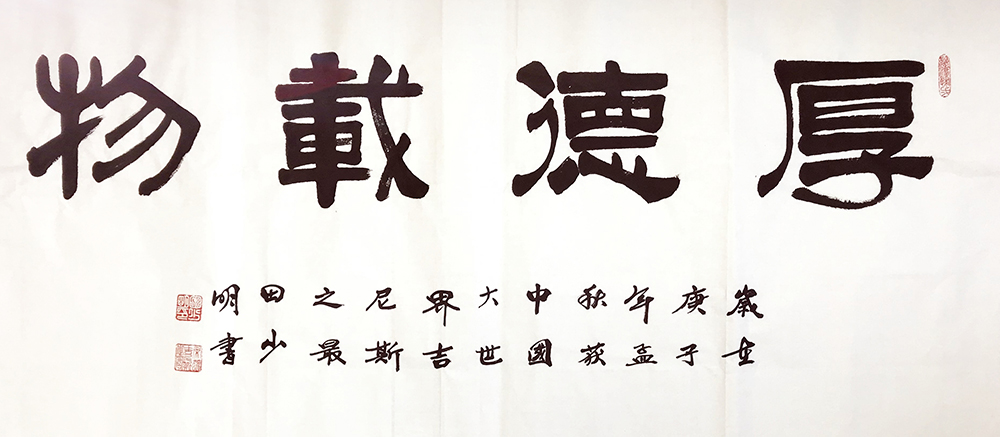 厚德載物
歲在
庚子
年孟
秋获
中國
大世
界吉
尼斯
之最
田少
明書